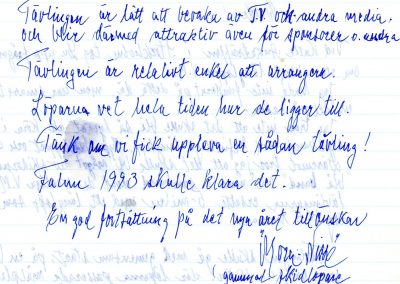 Tävlingen är lätt att bevaka av T.V. och andra media.
och blir därmed attraktiv även för sponsorer o. andra
Tävlingen är relativt enkel att arrangera.
Löparna vet hela tiden hur de ligger till.
Tänk om vi fick uppleva en sådan tävling!
Falun 1993 skulle klara det.
En god fortsättning på det nya året tillönskar
gammal skidlöpare